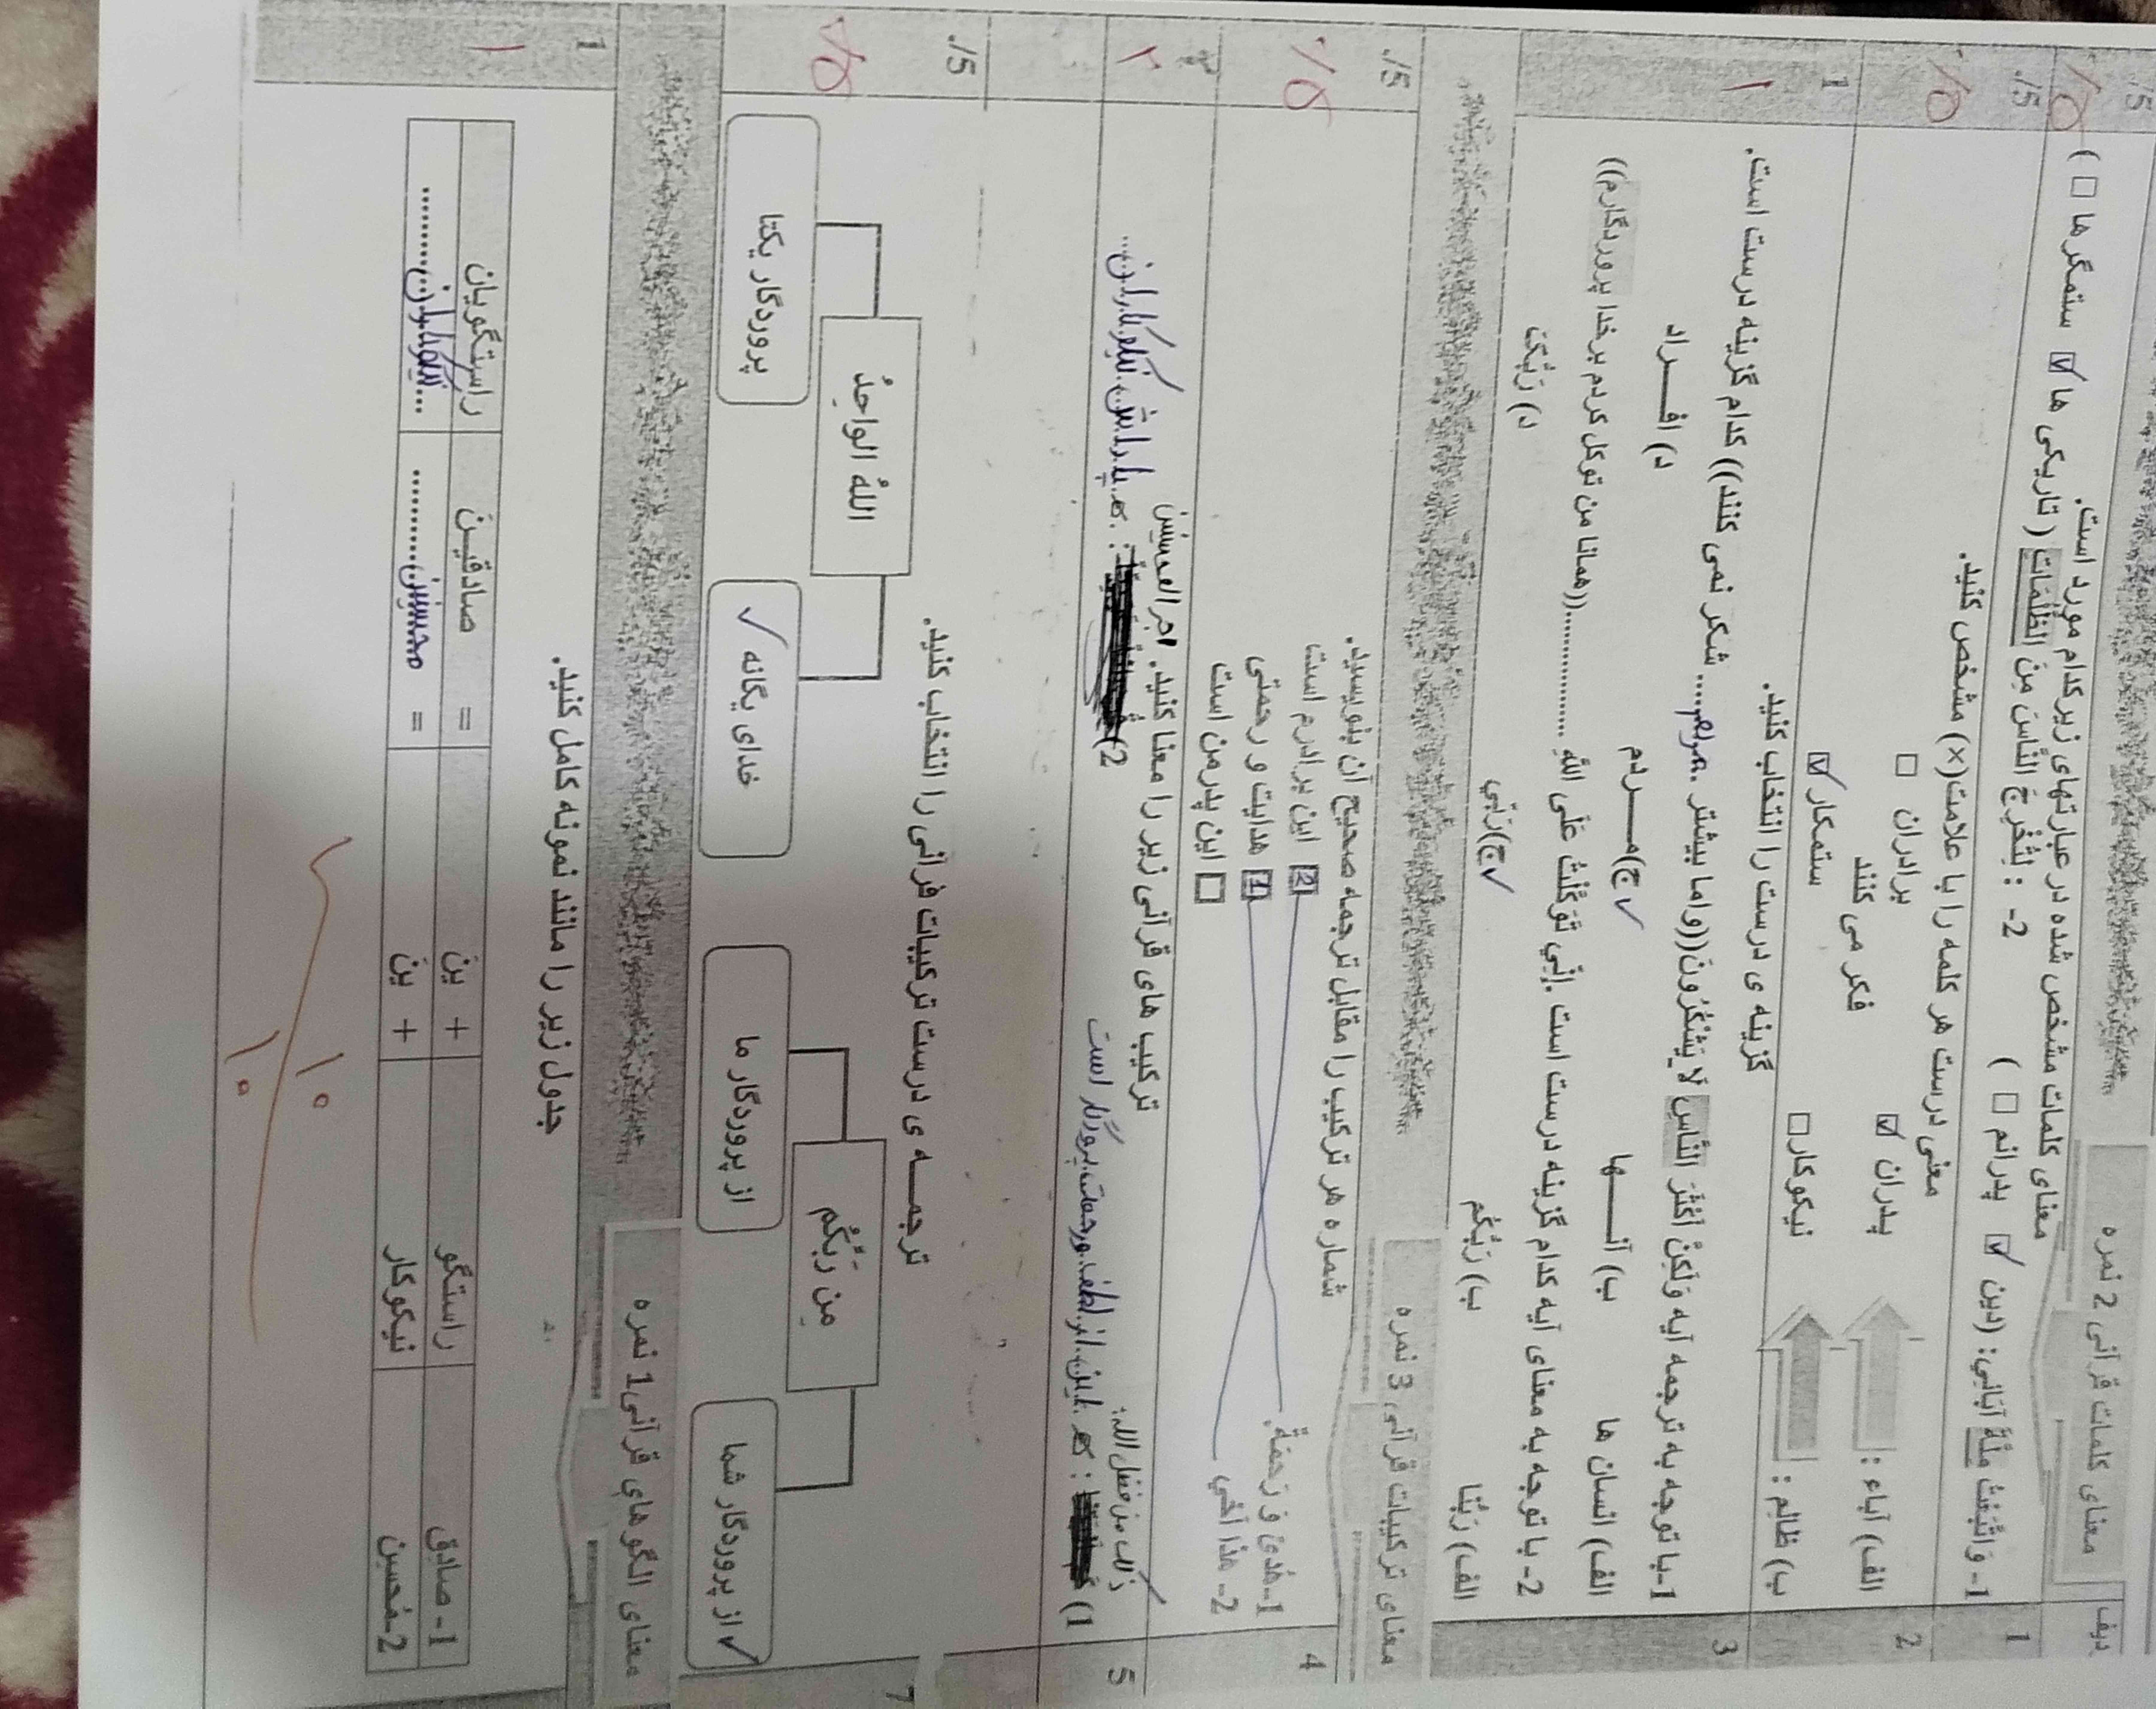 ردیف معنای کلمات قرآنی 2 نمره /5
معنای کلمات مشخص شده در عبارتهای زیر کدام مورد است.
1 1- وَاتَّبَعْتُ مِلَّةَ آبَائِي: (دین ☑ پدرانم ☐ ) 2- لِتُخْرِجَ النَّاسَ مِنَ الظُّلُمَاتِ ( تاریکی ها ☑ ستمگرها ☐ ) ./5
معنی درست هر کلمه را با علامت(×) مشخص کنید.
2 الف) آباء : پدران ☑ برادران ☐
فکر می کنند
ب) ظالِم : نیکوکار ☐ ستمکار ☑ 1
گزینه ی درست را انتخاب کنید.
3 1-با توجه به ترجمه آیه وَلَكِنَّ أَكْثَرَ النَّاسِ لَا يَشْكُرُونَ((واما بیشتر ..مردم.... شکر نمی کنند)) کدام گزینه درست است.
الف) انسان ها ب) آنـــها ✓ج)مـــردم د) افـــراد
2- با توجه به معنای آیه کدام گزینه درست است .إِنِّي تَوَكَّلْتُ عَلَى اللَّهِ ..................((همانا من توکل کردم بر خدا پروردگارم))
الف) رَبَّنا ب) رَبُّكُم ✓ج)رَبّي د) رَبُّكَ
معنای ترکیبات قرآنی 3 نمره
4 شماره هر ترکیب را مقابل ترجمه صحیح آن بنویسید. ./5
1-هُدىً وَ رَحمَةً. 2 این برادرم است
2- هذا أخي 1 هدایت و رحمتی
☐ این پدر من است
5 ترکیب های قرآنی زیر را معنا کنید.
ذلک من فضل الله: اجر المحسنین
1) : این از لطف و رحمت پروردگار است 2) : پاداش نیکوکاران
7 ترجمـــه ی درست ترکیبات قرآنی را انتخاب کنید. ./5
مِن رَبِّكُم اللهُ الواحِدُ
✓ از پروردگار شما از پروردگار ما خدای یگانه ✓ پروردگار یکتا
معنای الگوهای قرآنی1 نمره
جدول زیر را مانند نمونه کامل کنید. 1
1- صادِق راستگو + ينَ = صادقیـنَ راستگویان
2-مُحسِن نیکوکار + ينَ = محسنین نیکوکاران
۱۰
۱۰